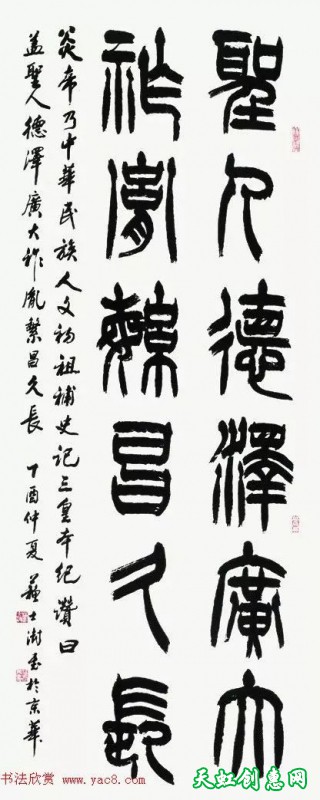 聖人德澤廣大
祚胤繁昌久長
炎帝乃中華民族人文初祖補史記三皇本紀贊曰
蓋聖人德澤廣大祚胤繁昌久長 丁酉仲夏 蘇士澍書於京華
书法欣赏
www.yac8.com
天虹创意网